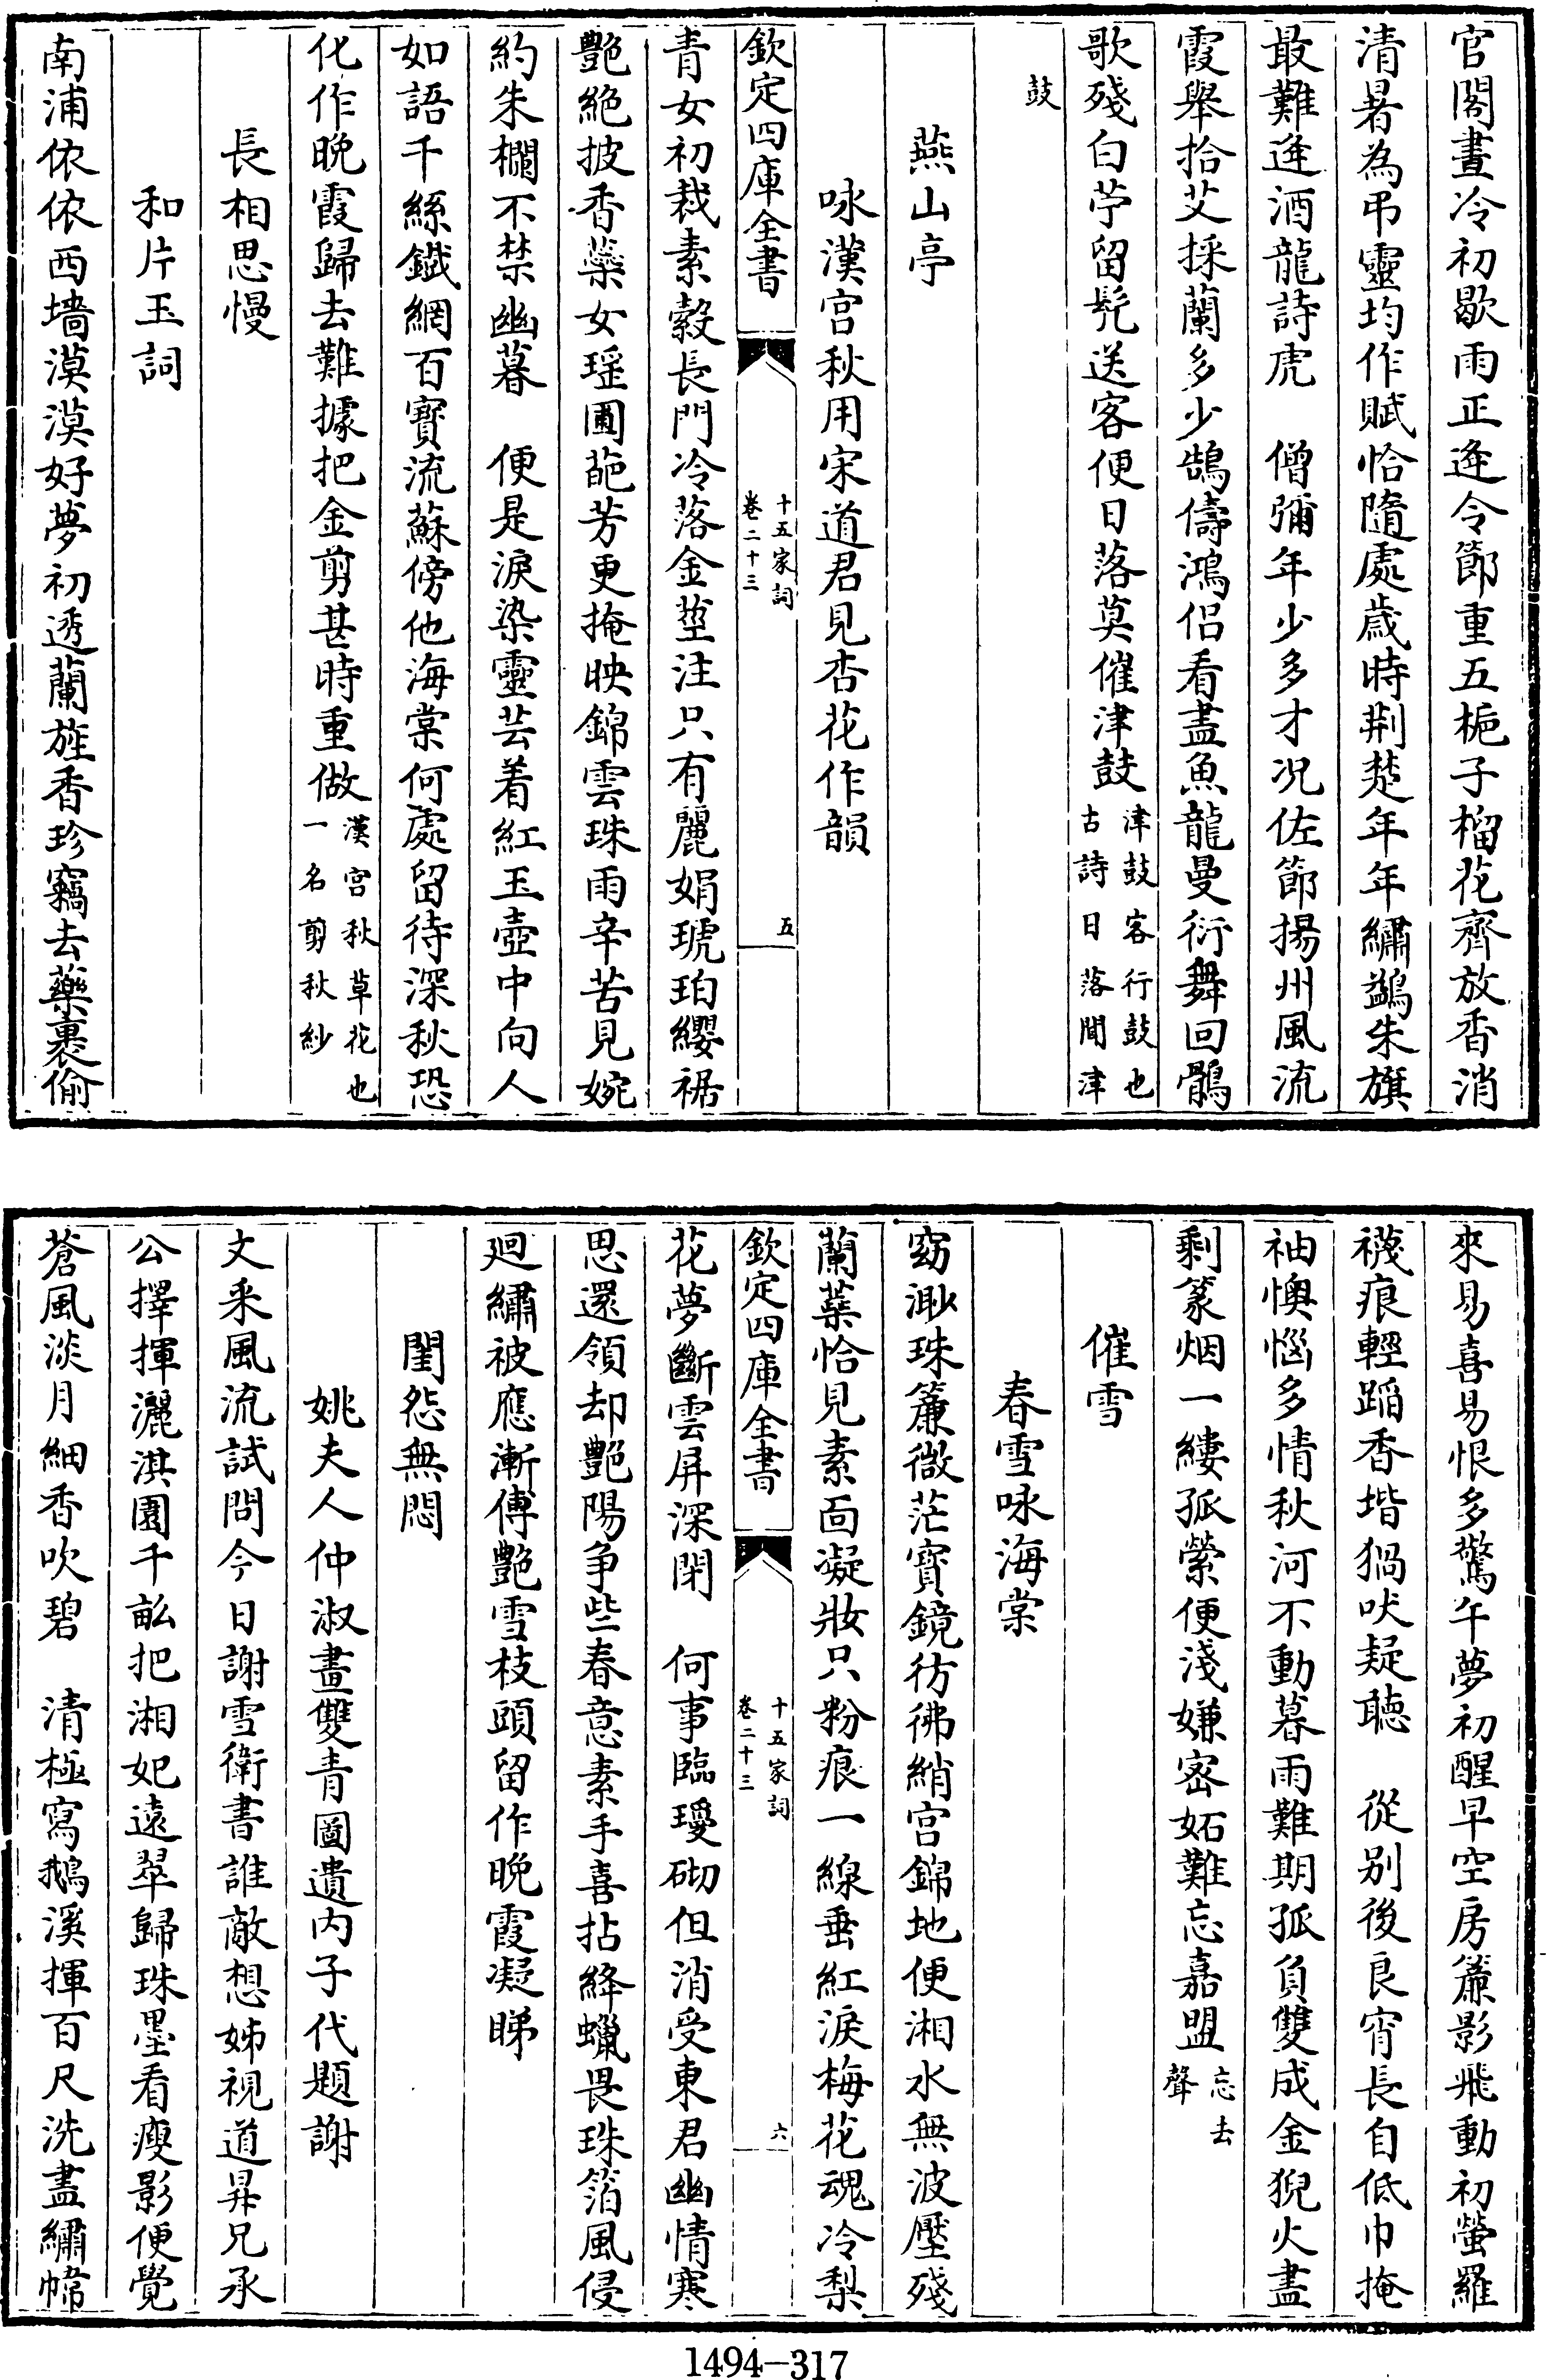 官閣晝冷初歇雨正逢令節重五梔子榴花齊放香消
清暑為弔靈均作賦恰隨處歲時荆楚年年繡鷁朱旗
最難逢酒龍詩虎　僧彌年少多才况佐節揚州風流
霞舉拾艾採蘭多少鵠儔鴻侣看盡魚龍曼衍舞回鶻
歌殘白苧留髠送客便日落莫催津鼓津鼓客行鼓也古詩日落聞津
鼓
燕山亭
咏漢宫秋用宋道君見杏花作韻
欽定四庫全書
十五家詞
卷二十三
五
青女初裁素縠長門冷落金莖注只有麗娟琥珀纓裾
艶絶披香蘂女瑶圃葩芳更掩映錦雲珠雨辛苦見婉
約朱欄不禁幽暮　便是淚染靈芸着紅玉壺中向人
如語千絲鐵網百寳流蘇傍他海棠何處留待深秋恐
化作晩霞歸去難據把金剪甚時重做漢宫秋草花也一名剪秋紗
長相思慢
和片玉詞
南浦依依西墻漠漠好夢初透蘭旌香珍竊去藥裹偷
來易喜易恨多驚午夢初醒早空房簾影飛動初螢羅
襪痕輕蹈香堦猧吠疑聽　從别後良宵長自低巾掩
袖懊惱多情秋河不動暮雨難期孤負雙成金猊火盡
剩篆烟一縷孤縈便淺嫌宻妬難忘嘉盟忘去聲
催雪
春雪咏海棠
窈渺珠簾微茫寳鏡彷彿綃宫錦地便湘水無波壓殘
蘭蘂恰見素面凝妝只粉痕一線垂紅淚梅花魂冷梨
欽定四庫全書
十五家詞
卷二十三
六
花夢斷雲屏深閉　何事臨瓊砌但消受東君幽情寒
思還領却艶陽争些春意素手喜拈絳蠟畏珠箔風侵
廻繡被應漸傅艶雪枝頭留作晩霞凝睇
閨怨無悶
姚夫人仲淑畫雙青圖遺内子代題謝
文采風流試問今日謝雪衛書誰敵想姊視道昇兄承
公擇揮灑淇園千畝把湘妃遠翠歸珠墨看瘦影便覺
蒼風淡月細香吹碧　清極寫鵝溪揮百尺洗盡繡幃
1494-317